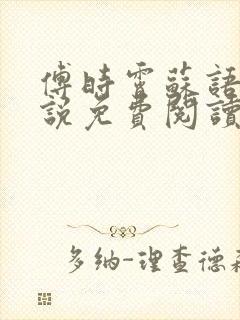 傅時霄蘇語
說免費閱讀
多納-理查德森